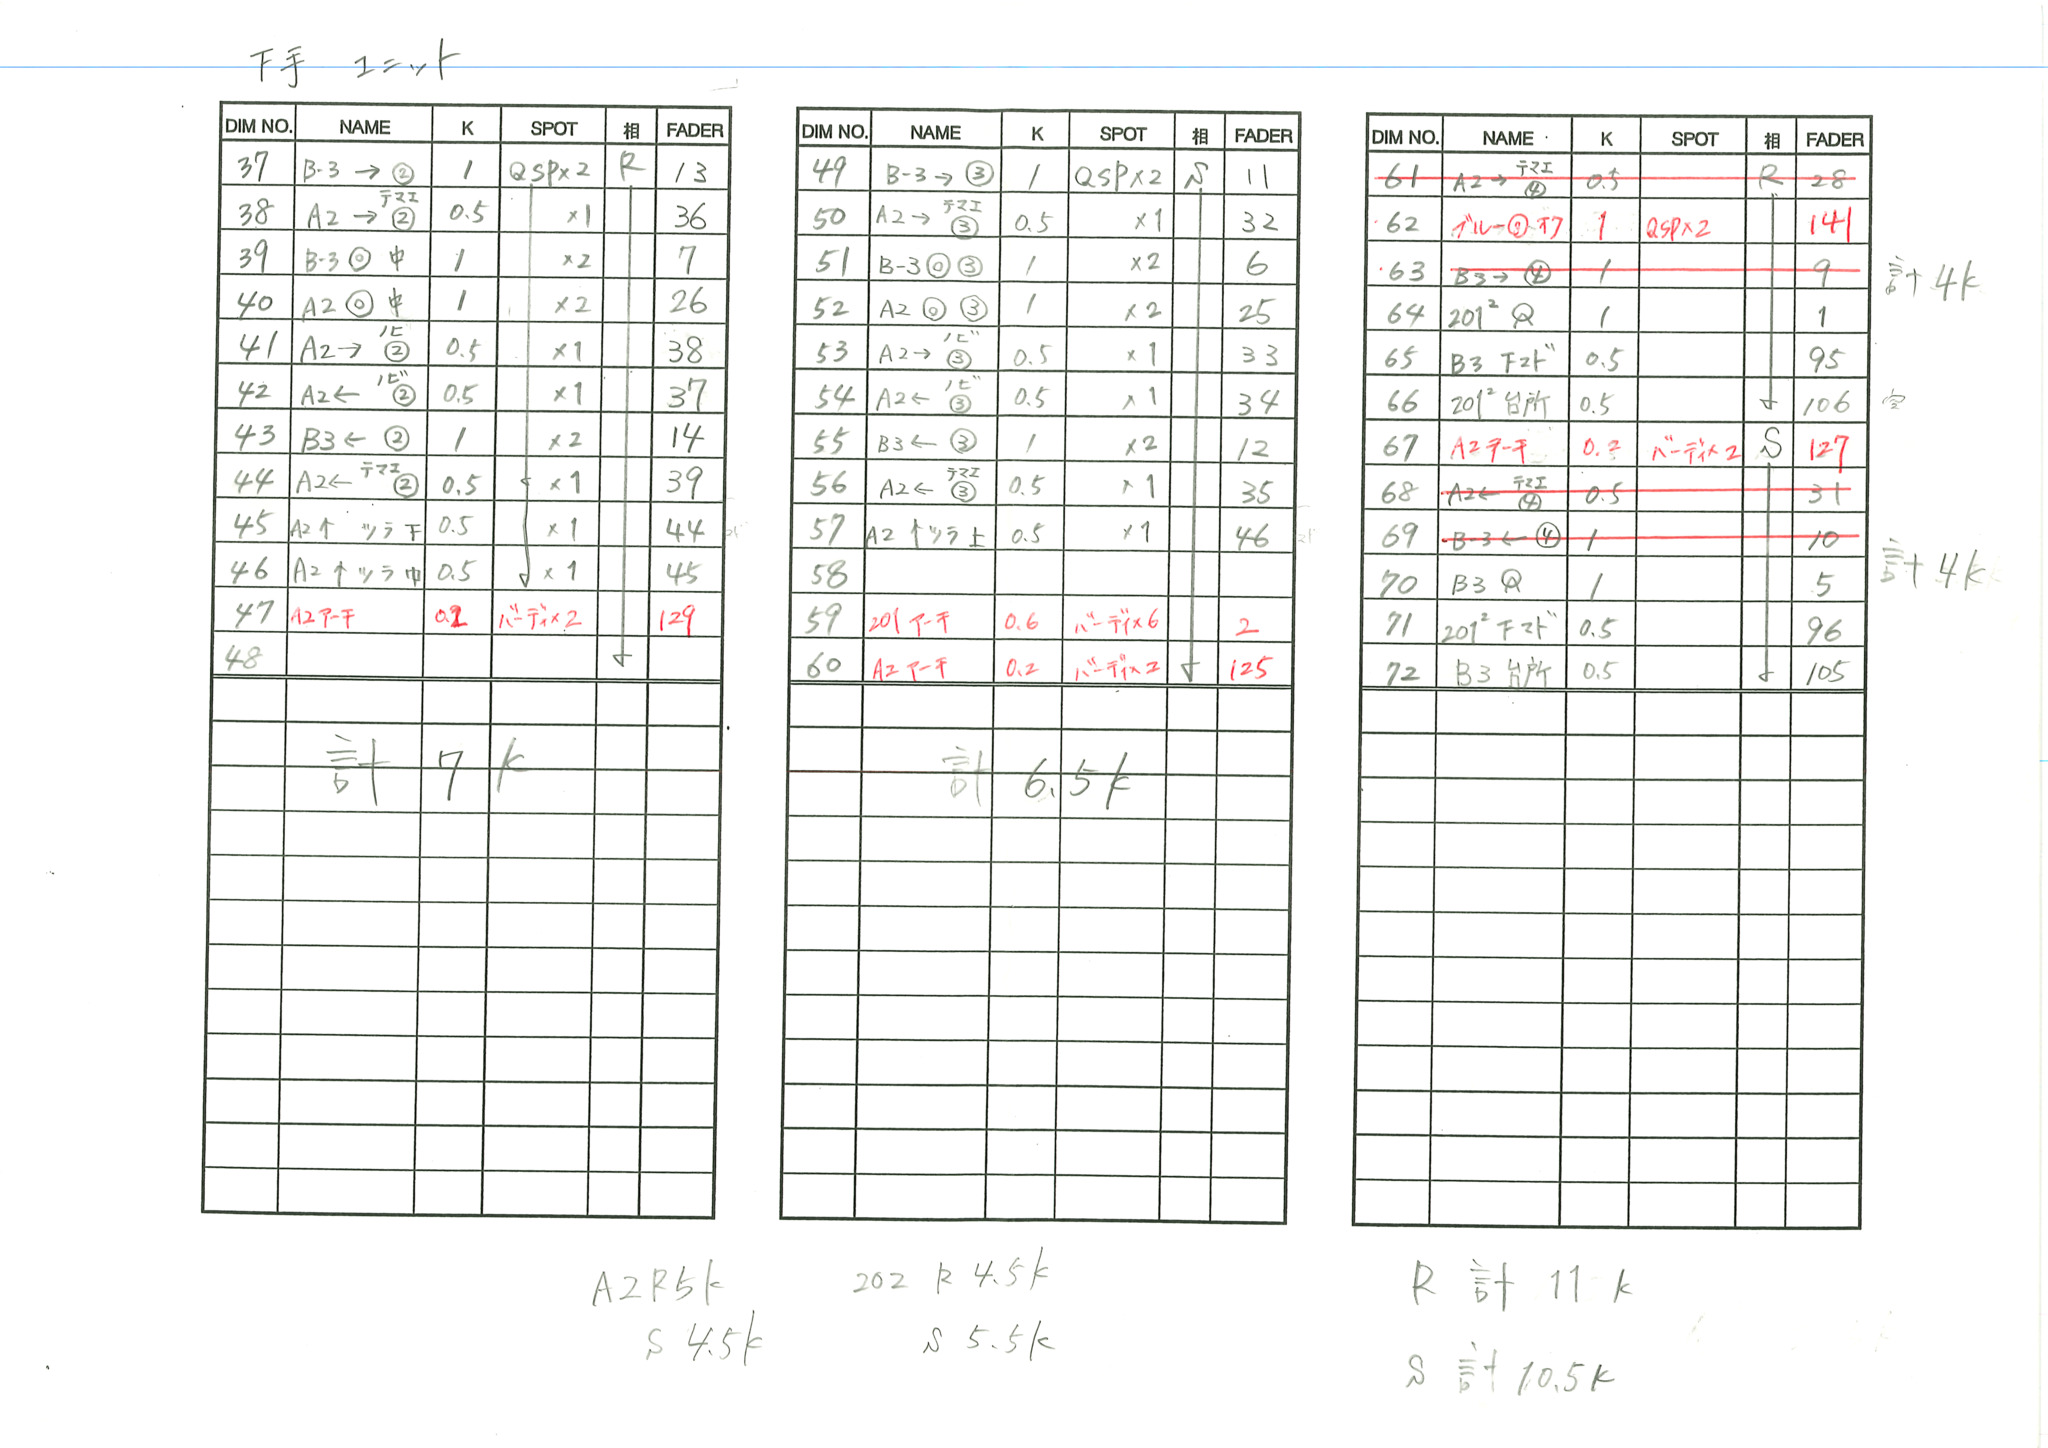 下手 ユニット
DIM NO. NAME K SPOT 相 FADER
37 B-3 → ② 1 QSP×2 R 13
38 A2 → テマエ② 0.5 ×1 36
39 B-3 ◎ 中 1 ×2 7
40 A2 ◎ 中 1 ×2 26
41 A2→ ノビ② 0.5 ×1 38
42 A2← ノビ② 0.5 ×1 37
43 B3← ② 1 ×2 14
44 A2← テマエ② 0.5 ×1 39
45 A2↑ ツラ下 0.5 ×1 44
46 A2↑ツラ中 0.5 ×1 45
47 A2アーチ 0.2 バーディ×2 129
48
計 7 k
DIM NO. NAME K SPOT 相 FADER
49 B-3→ ③ 1 QSP×2 S 11
50 A2→ テマエ③ 0.5 ×1 32
51 B-3◎③ 1 ×2 6
52 A2◎③ 1 ×2 25
53 A2→ ノビ③ 0.5 ×1 33
54 A2← ノビ③ 0.5 ×1 34
55 B3← ③ 1 ×2 12
56 A2← テマエ③ 0.5 ×1 35
57 A2↑ツラ上 0.5 ×1 46
58
59 201アーチ 0.6 バーディ×6 2
60 A2アーチ 0.2 バーディ×2 125
計 6.5k
DIM NO. NAME K SPOT 相 FADER
61 A2→ テマエ④ 0.5 R 28
62 ブルー◎オク 1 QSP×2 141
63 B3→ ④ 1 9
計 4k
64 201² Q 1 1
65 B3 チマド 0.5 95
66 201² 台所 0.5 106
67 A2アーチ 0.2 バーディ×2 S 127
68 A2← テマエ④ 0.5 31
69 B-3← ④ 1 10
計 4k
70 B3 Q 1 5
71 201² チマド 0.5 96
72 B3 台所 0.5 105
A2R5k
S 4.5k
202 R 4.5k
S 5.5k
R 計 11 k
S 計 10.5k